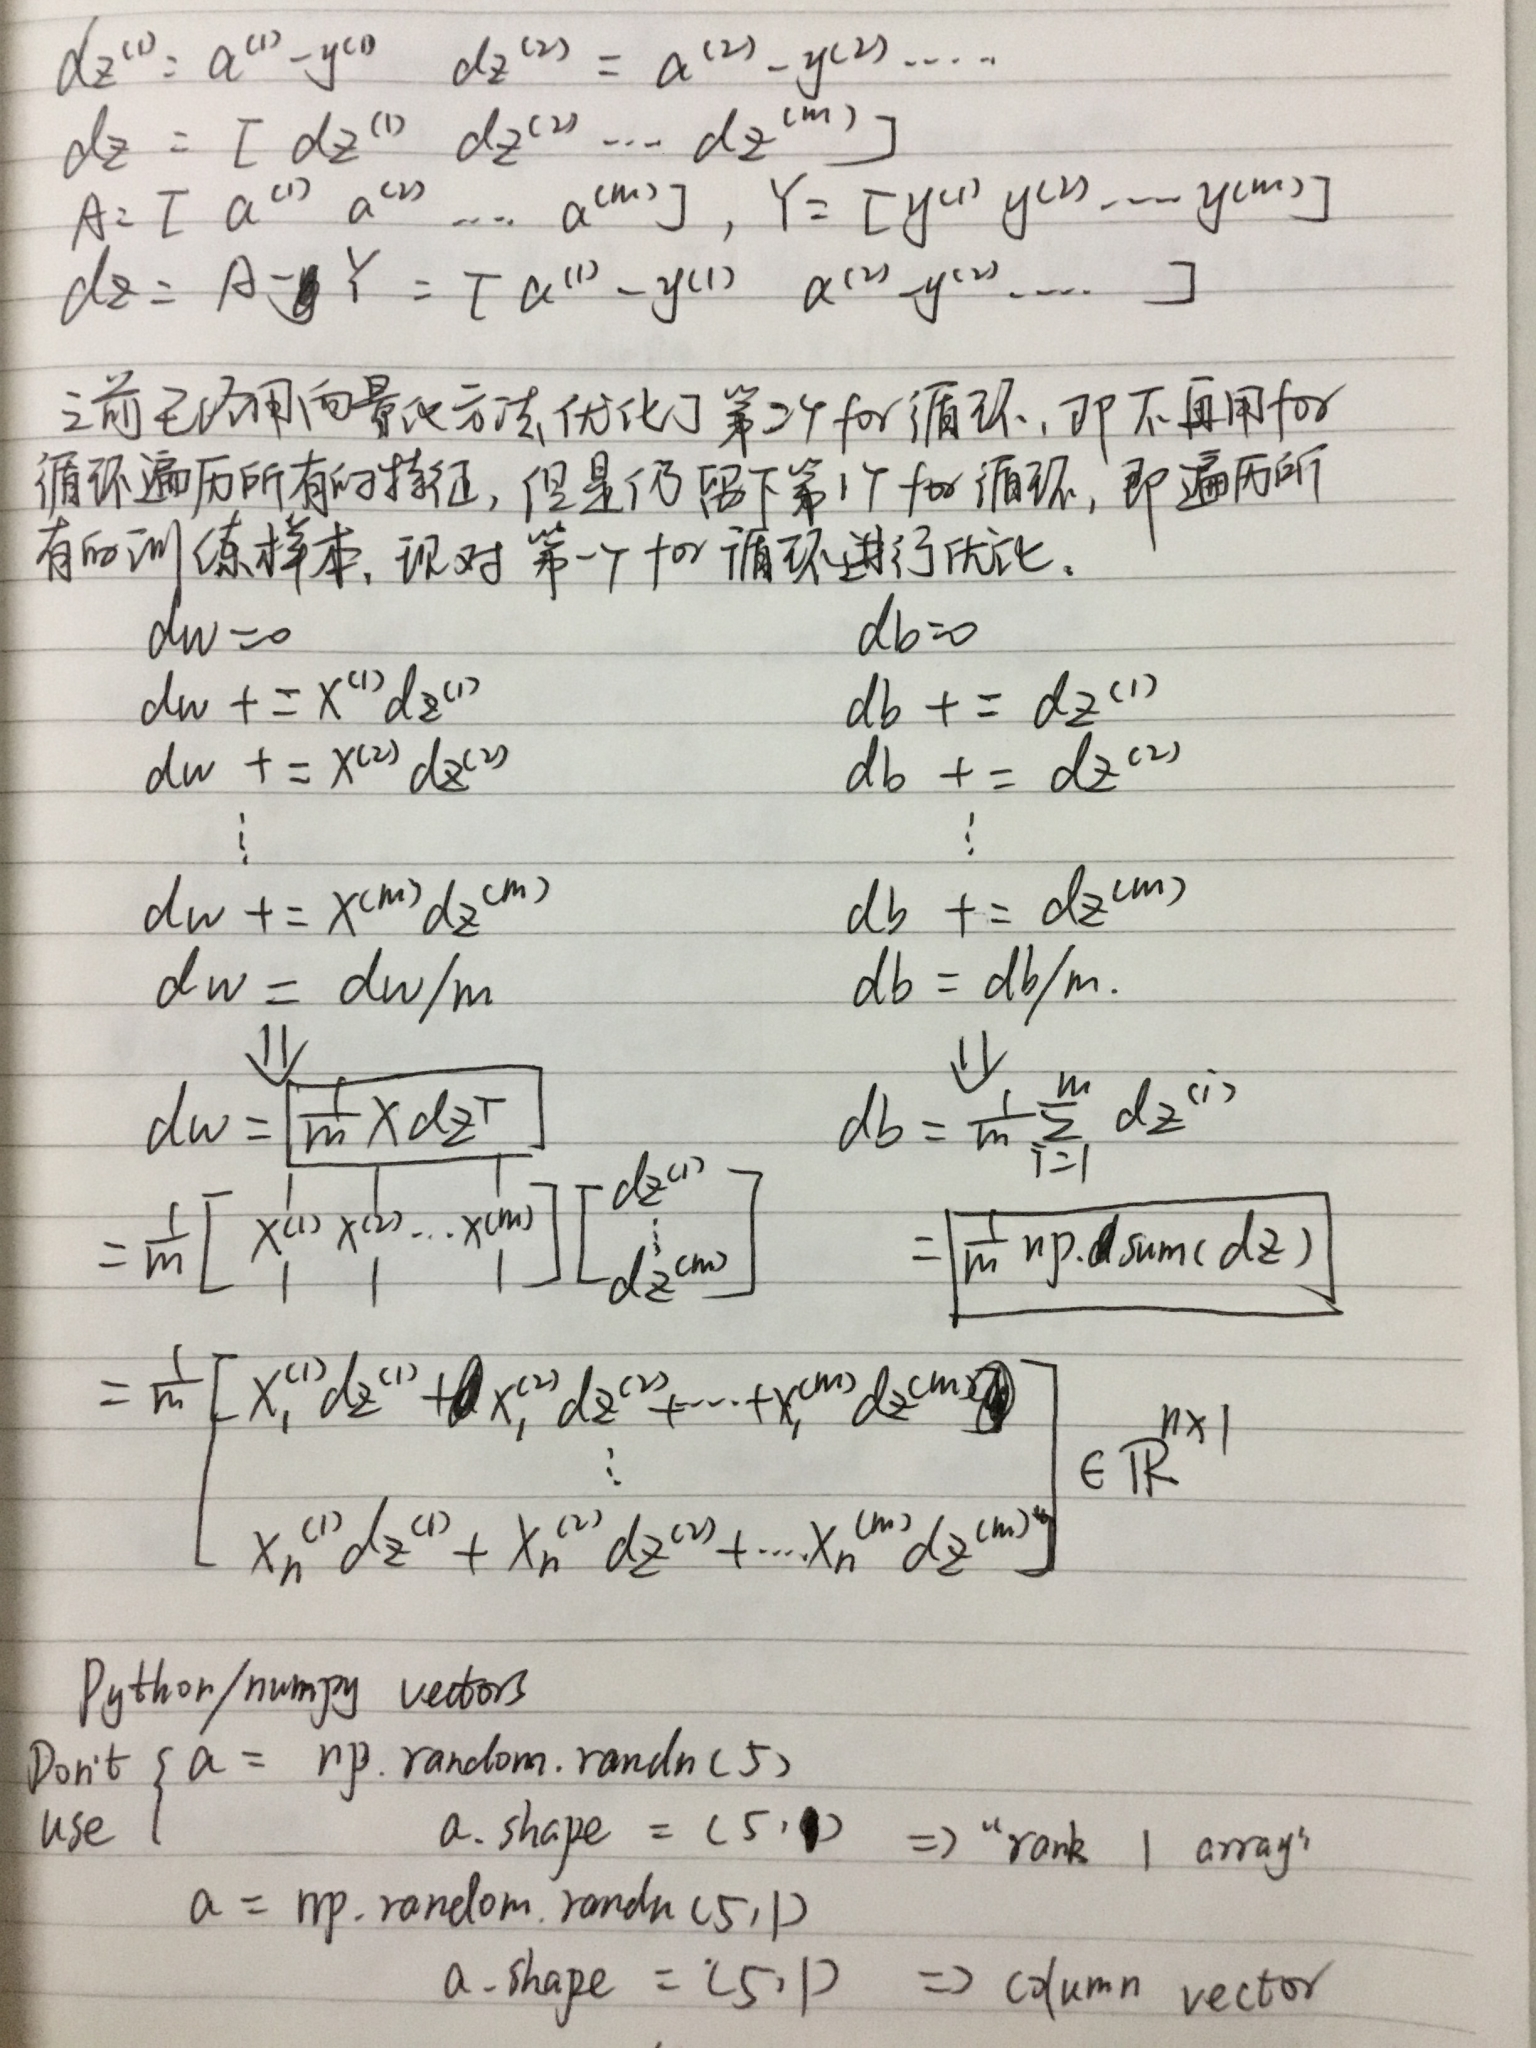 dz⁽¹⁾ = a⁽¹⁾ - y⁽¹⁾ dz⁽²⁾ = a⁽²⁾ - y⁽²⁾ .....
dz = [ dz⁽¹⁾ dz⁽²⁾ ... dz⁽ᵐ⁾ ]
A = [ a⁽¹⁾ a⁽²⁾ .... a⁽ᵐ⁾ ] , Y = [ y⁽¹⁾ y⁽²⁾ ..... y⁽ᵐ⁾ ]
dz = A - Y = [ a⁽¹⁾ - y⁽¹⁾ a⁽²⁾ - y⁽²⁾ ..... ]
之前已经用向量化方法优化了第2个for循环,即不再用for
循环遍历所有的特征,但是仍留下第1个for循环,即遍历所
有的训练样本,现对第一个for循环进行优化。
dw=0 db=0
dw += x⁽¹⁾dz⁽¹⁾ db += dz⁽¹⁾
dw += x⁽²⁾dz⁽²⁾ db += dz⁽²⁾
⋮ ⋮
dw += x⁽ᵐ⁾dz⁽ᵐ⁾ db += dz⁽ᵐ⁾
dw = dw/m db = db/m.
⇓ ⇓
dw = 1/m X dzᵀ db = 1/m Σᵢ₌₁ᵐ dz⁽ⁱ⁾
= 1/m [ x⁽¹⁾ x⁽²⁾ ... x⁽ᵐ⁾ ] [ dz⁽¹⁾ ⋮ dz⁽ᵐ⁾ ] = 1/m np.sum(dz)
= 1/m [ x₁⁽¹⁾dz⁽¹⁾ + x₁⁽²⁾dz⁽²⁾ + .... + x₁⁽ᵐ⁾dz⁽ᵐ⁾
⋮ ∈ ℝⁿˣ¹
xₙ⁽¹⁾dz⁽¹⁾ + xₙ⁽²⁾dz⁽²⁾ + .... xₙ⁽ᵐ⁾dz⁽ᵐ⁾ ]
Python/numpy vectors
Don't use { a = np.random.randn(5)
a.shape = (5,) => "rank 1 array"
a = np.random.randn(5,1)
a.shape = (5,1) => column vector